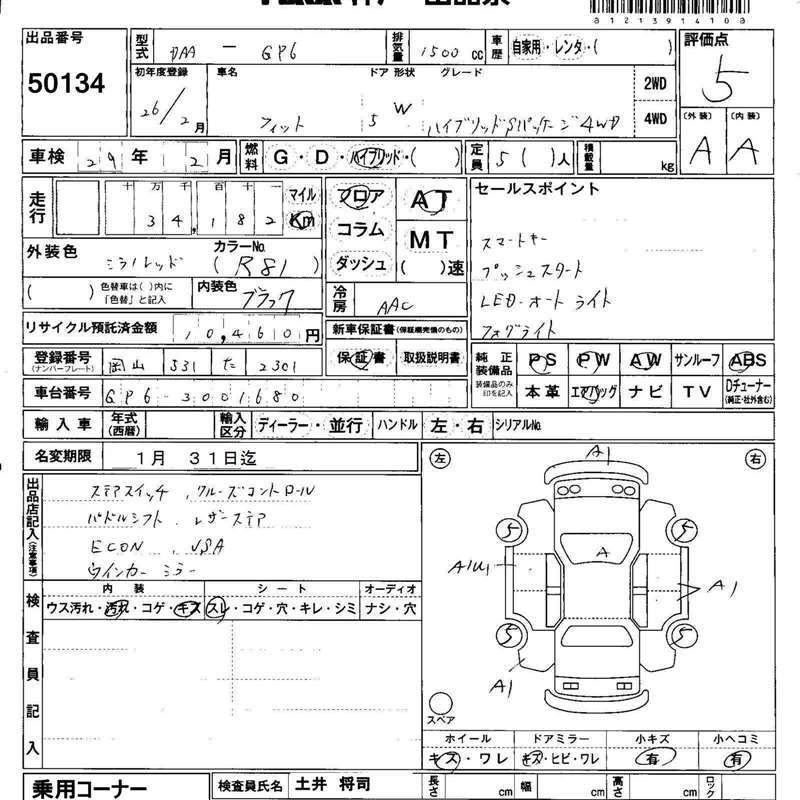 a1213914108
出品番号
50134
型式 DAA - GP6
排気量 1500 cc
車歴 自家用・レンタ・( )
評価点
5
初年度登録 26/2月
車名 フィット
ドア 形状 5 W
グレード ハイブリッドSパッケージ4WD
2WD
4WD
(外装) A
(内装) A
車検 29年12月
燃料 G・D・ハイブリッド・( )
定員 5( )人
積載量 kg
走行 十万千百十一
34,182
マイル
Km
フロア
コラム
ダッシュ
AT
MT
( )速
セールスポイント
スマートキー
プッシュスタート
LED・オートライト
フォグライト
外装色 ミラノレッド
カラーNo. (R81)
( ) 色替車は( )内に「色替」と記入
内装色 ブラック
冷房 AAC
リサイクル預託済金額 10,460円
新車保証書(保証継続完備のもの)
保証書 取扱説明書
登録番号 (ナンバープレート) 岡山 531 た 2301
純正装備品 装備品のみ印を記入
PS PW AW サンルーフ ABS
本革 エアバッグ ナビ TV Dチューナー(純正・社外含む)
車台番号 GP6-3001680
輸入車 年式(西暦) 輸入区分 ディーラー・並行 ハンドル 左・右 シリアルNo.
名変期限 1月 31日迄
出品店記入(注意事項)
ステアスイッチ、クルーズコントロール
パドルシフト、レザーステア
ECON、VSA
ウインカーミラー
左
右
A1
5
5
A
A1U1
A1
5
5
A1
スペア
検査員記入
内装 シート オーディオ
ウス汚れ・汚れ・コゲ・キズ スレ・コゲ・穴・キレ・シミ ナシ・穴
ホイール ドアミラー 小キズ 小ヘコミ
キズ・ワレ キズ・ヒビ・ワレ 有 有
乗用コーナー
検査員氏名 土井 将司
長さ cm 幅 cm 高さ cm ロック